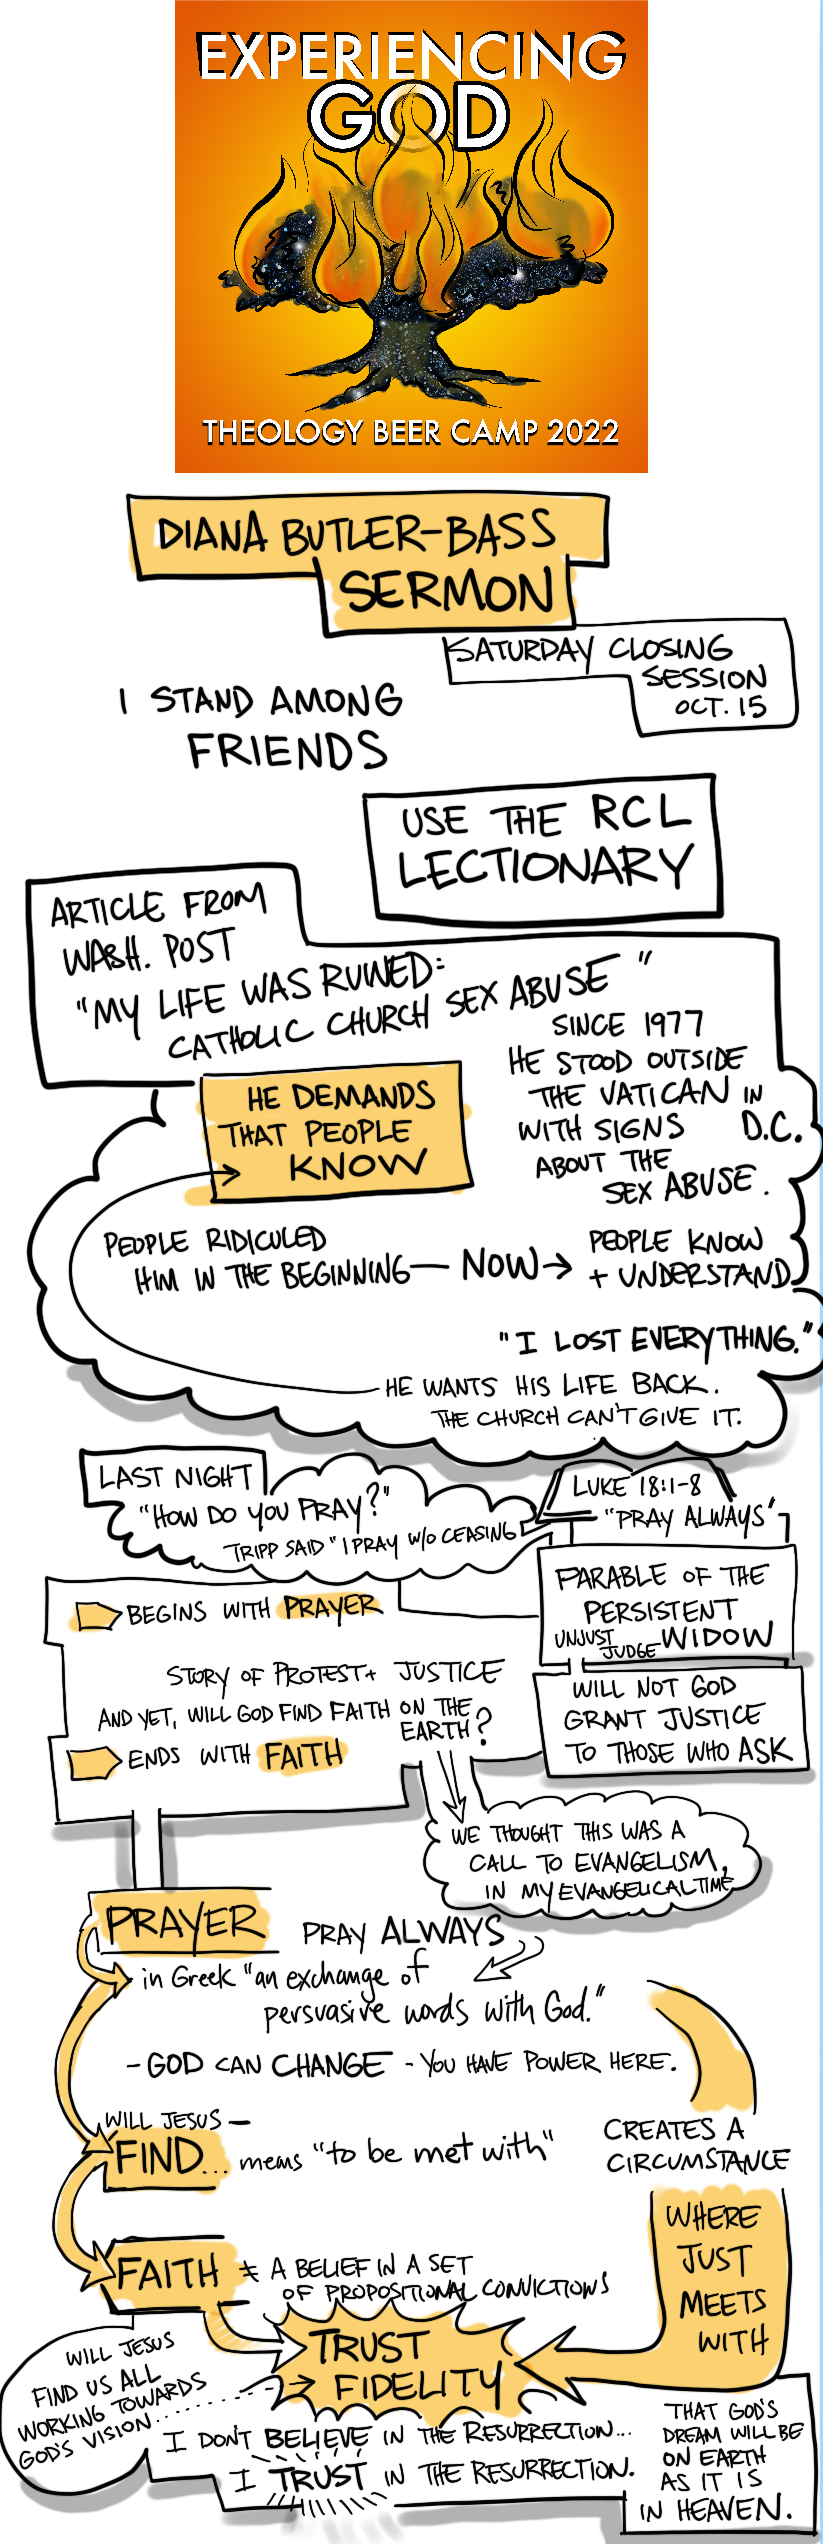 EXPERIENCING
GOD
THEOLOGY BEER CAMP 2022
DIANA BUTLER-BASS
SERMON
SATURDAY CLOSING
SESSION
OCT. 15
I STAND AMONG
FRIENDS
USE THE RCL
LECTIONARY
ARTICLE FROM
WASH. POST
"MY LIFE WAS RUINED:
CATHOLIC CHURCH SEX ABUSE"
SINCE 1977
HE STOOD OUTSIDE
THE VATICAN IN
WITH SIGNS D.C.
ABOUT THE
SEX ABUSE.
HE DEMANDS
THAT PEOPLE
KNOW
PEOPLE RIDICULED
HIM IN THE BEGINNING— NOW→
PEOPLE KNOW
+ UNDERSTAND
"I LOST EVERYTHING."
HE WANTS HIS LIFE BACK.
THE CHURCH CAN'T GIVE IT.
LAST NIGHT
"HOW DO YOU PRAY?"
TRIPP SAID "I PRAY W/O CEASING
LUKE 18:1-8
"PRAY ALWAYS"
PARABLE OF THE
PERSISTENT
UNJUST JUDGE WIDOW
WILL NOT GOD
GRANT JUSTICE
TO THOSE WHO ASK
BEGINS WITH PRAYER
STORY OF PROTEST + JUSTICE
AND YET, WILL GOD FIND FAITH ON THE
EARTH?
ENDS WITH FAITH
WE THOUGHT THIS WAS A
CALL TO EVANGELISM,
IN MY EVANGELICAL TIME
PRAYER
PRAY ALWAYS
in Greek "an exchange of
persuasive words with God."
- GOD CAN CHANGE - YOU HAVE POWER HERE.
WILL JESUS —
FIND... means "to be met with"
CREATES A
CIRCUMSTANCE
WHERE
JUST
MEETS
WITH
FAITH ≠ A BELIEF IN A SET
OF PROPOSITIONAL CONVICTIONS
TRUST
FIDELITY
WILL JESUS
FIND US ALL
WORKING TOWARDS
GOD'S VISION.......
I DON'T BELIEVE IN THE RESURRECTION...
I TRUST IN THE RESURRECTION.
THAT GOD'S
DREAM WILL BE
ON EARTH
AS IT IS
IN HEAVEN.